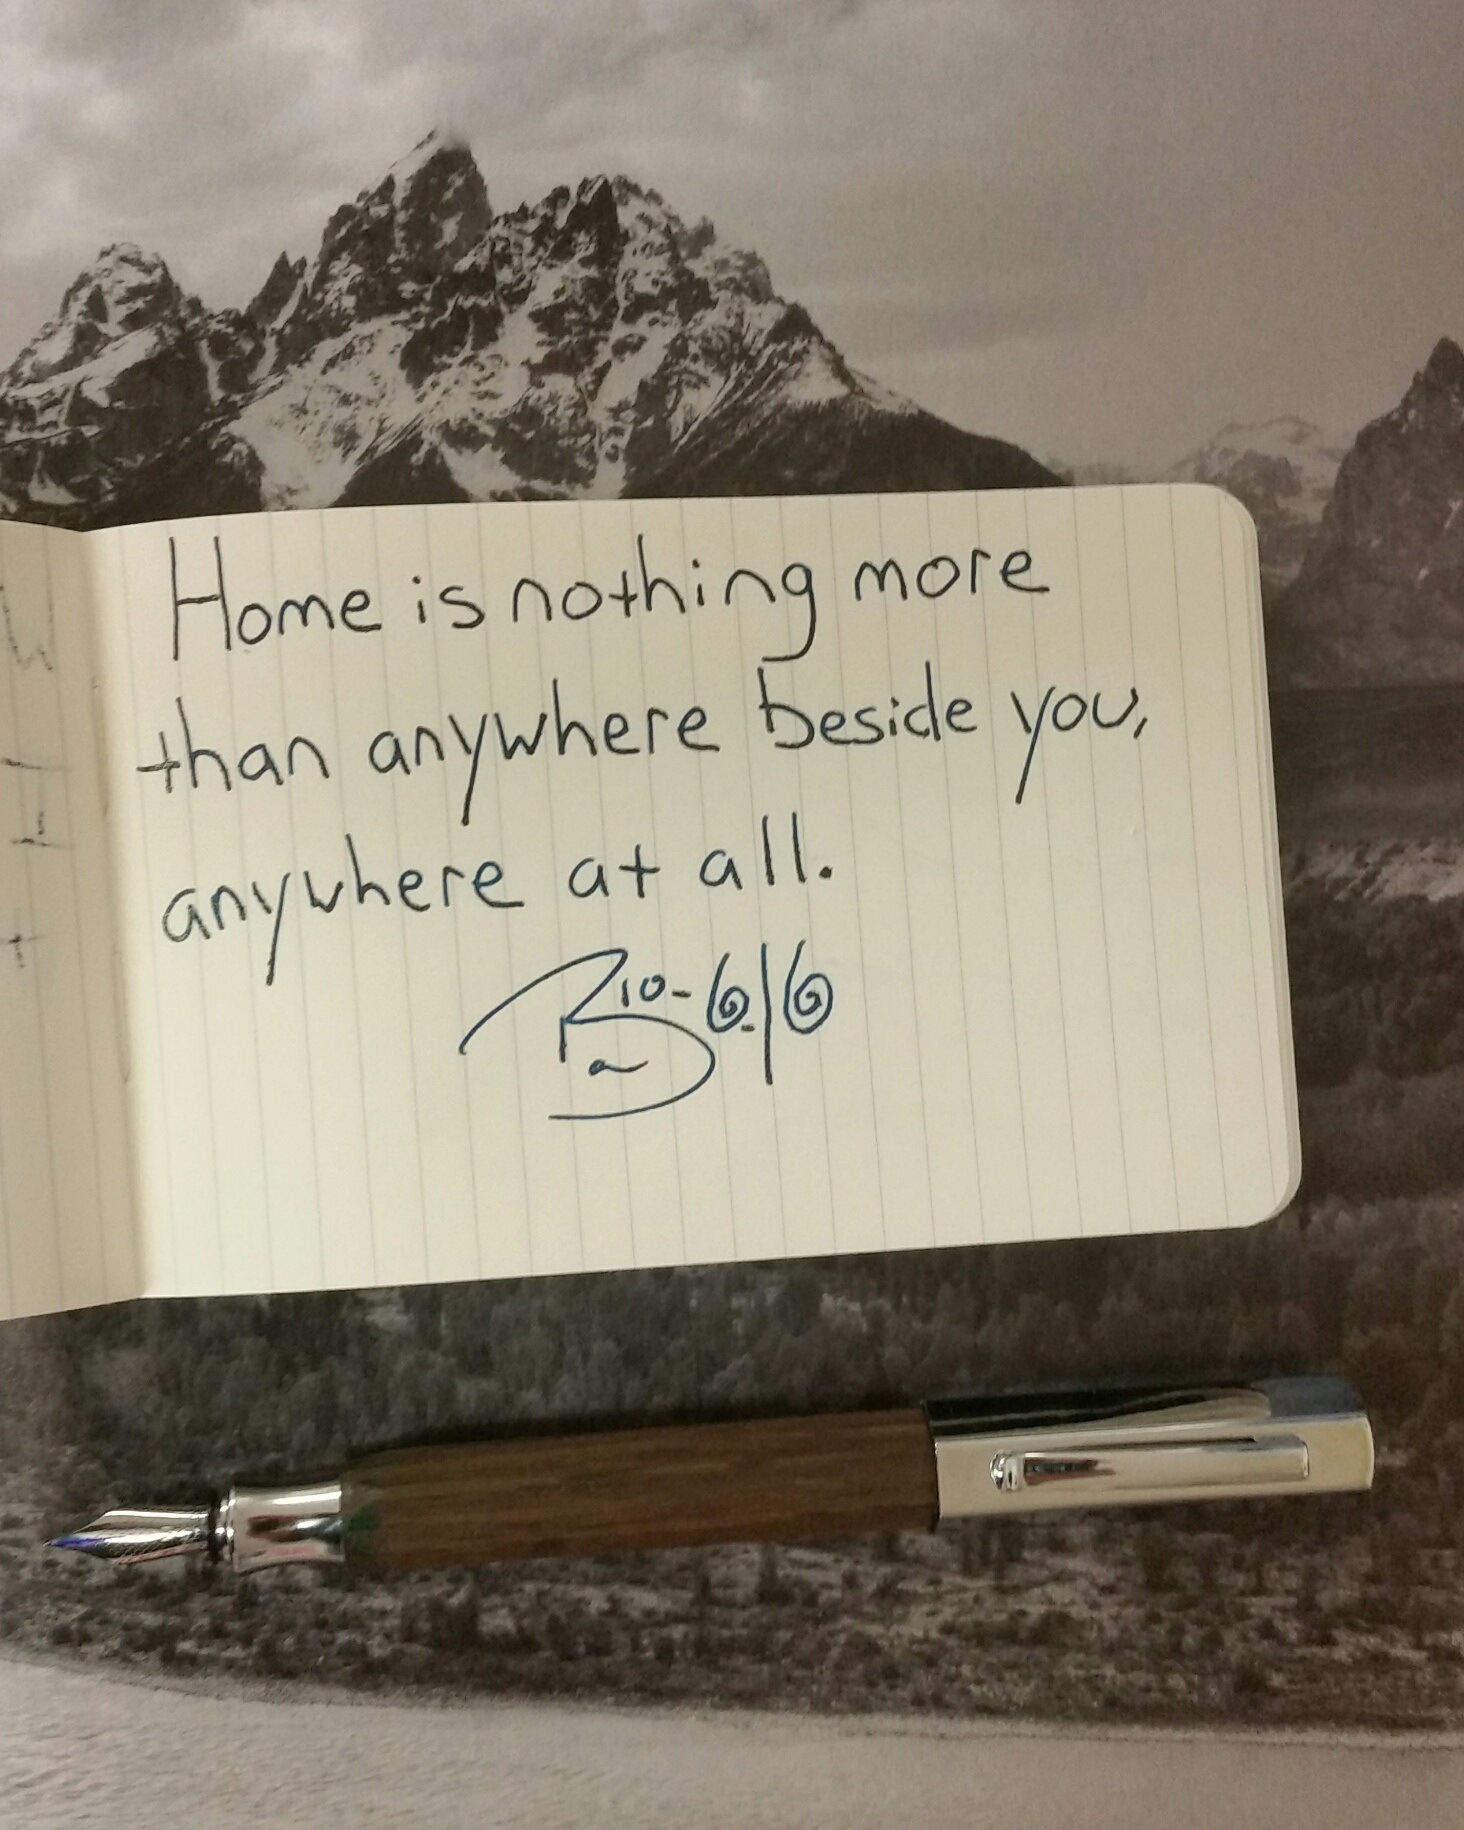 Home is nothing more
than anywhere beside you,
anywhere at all.